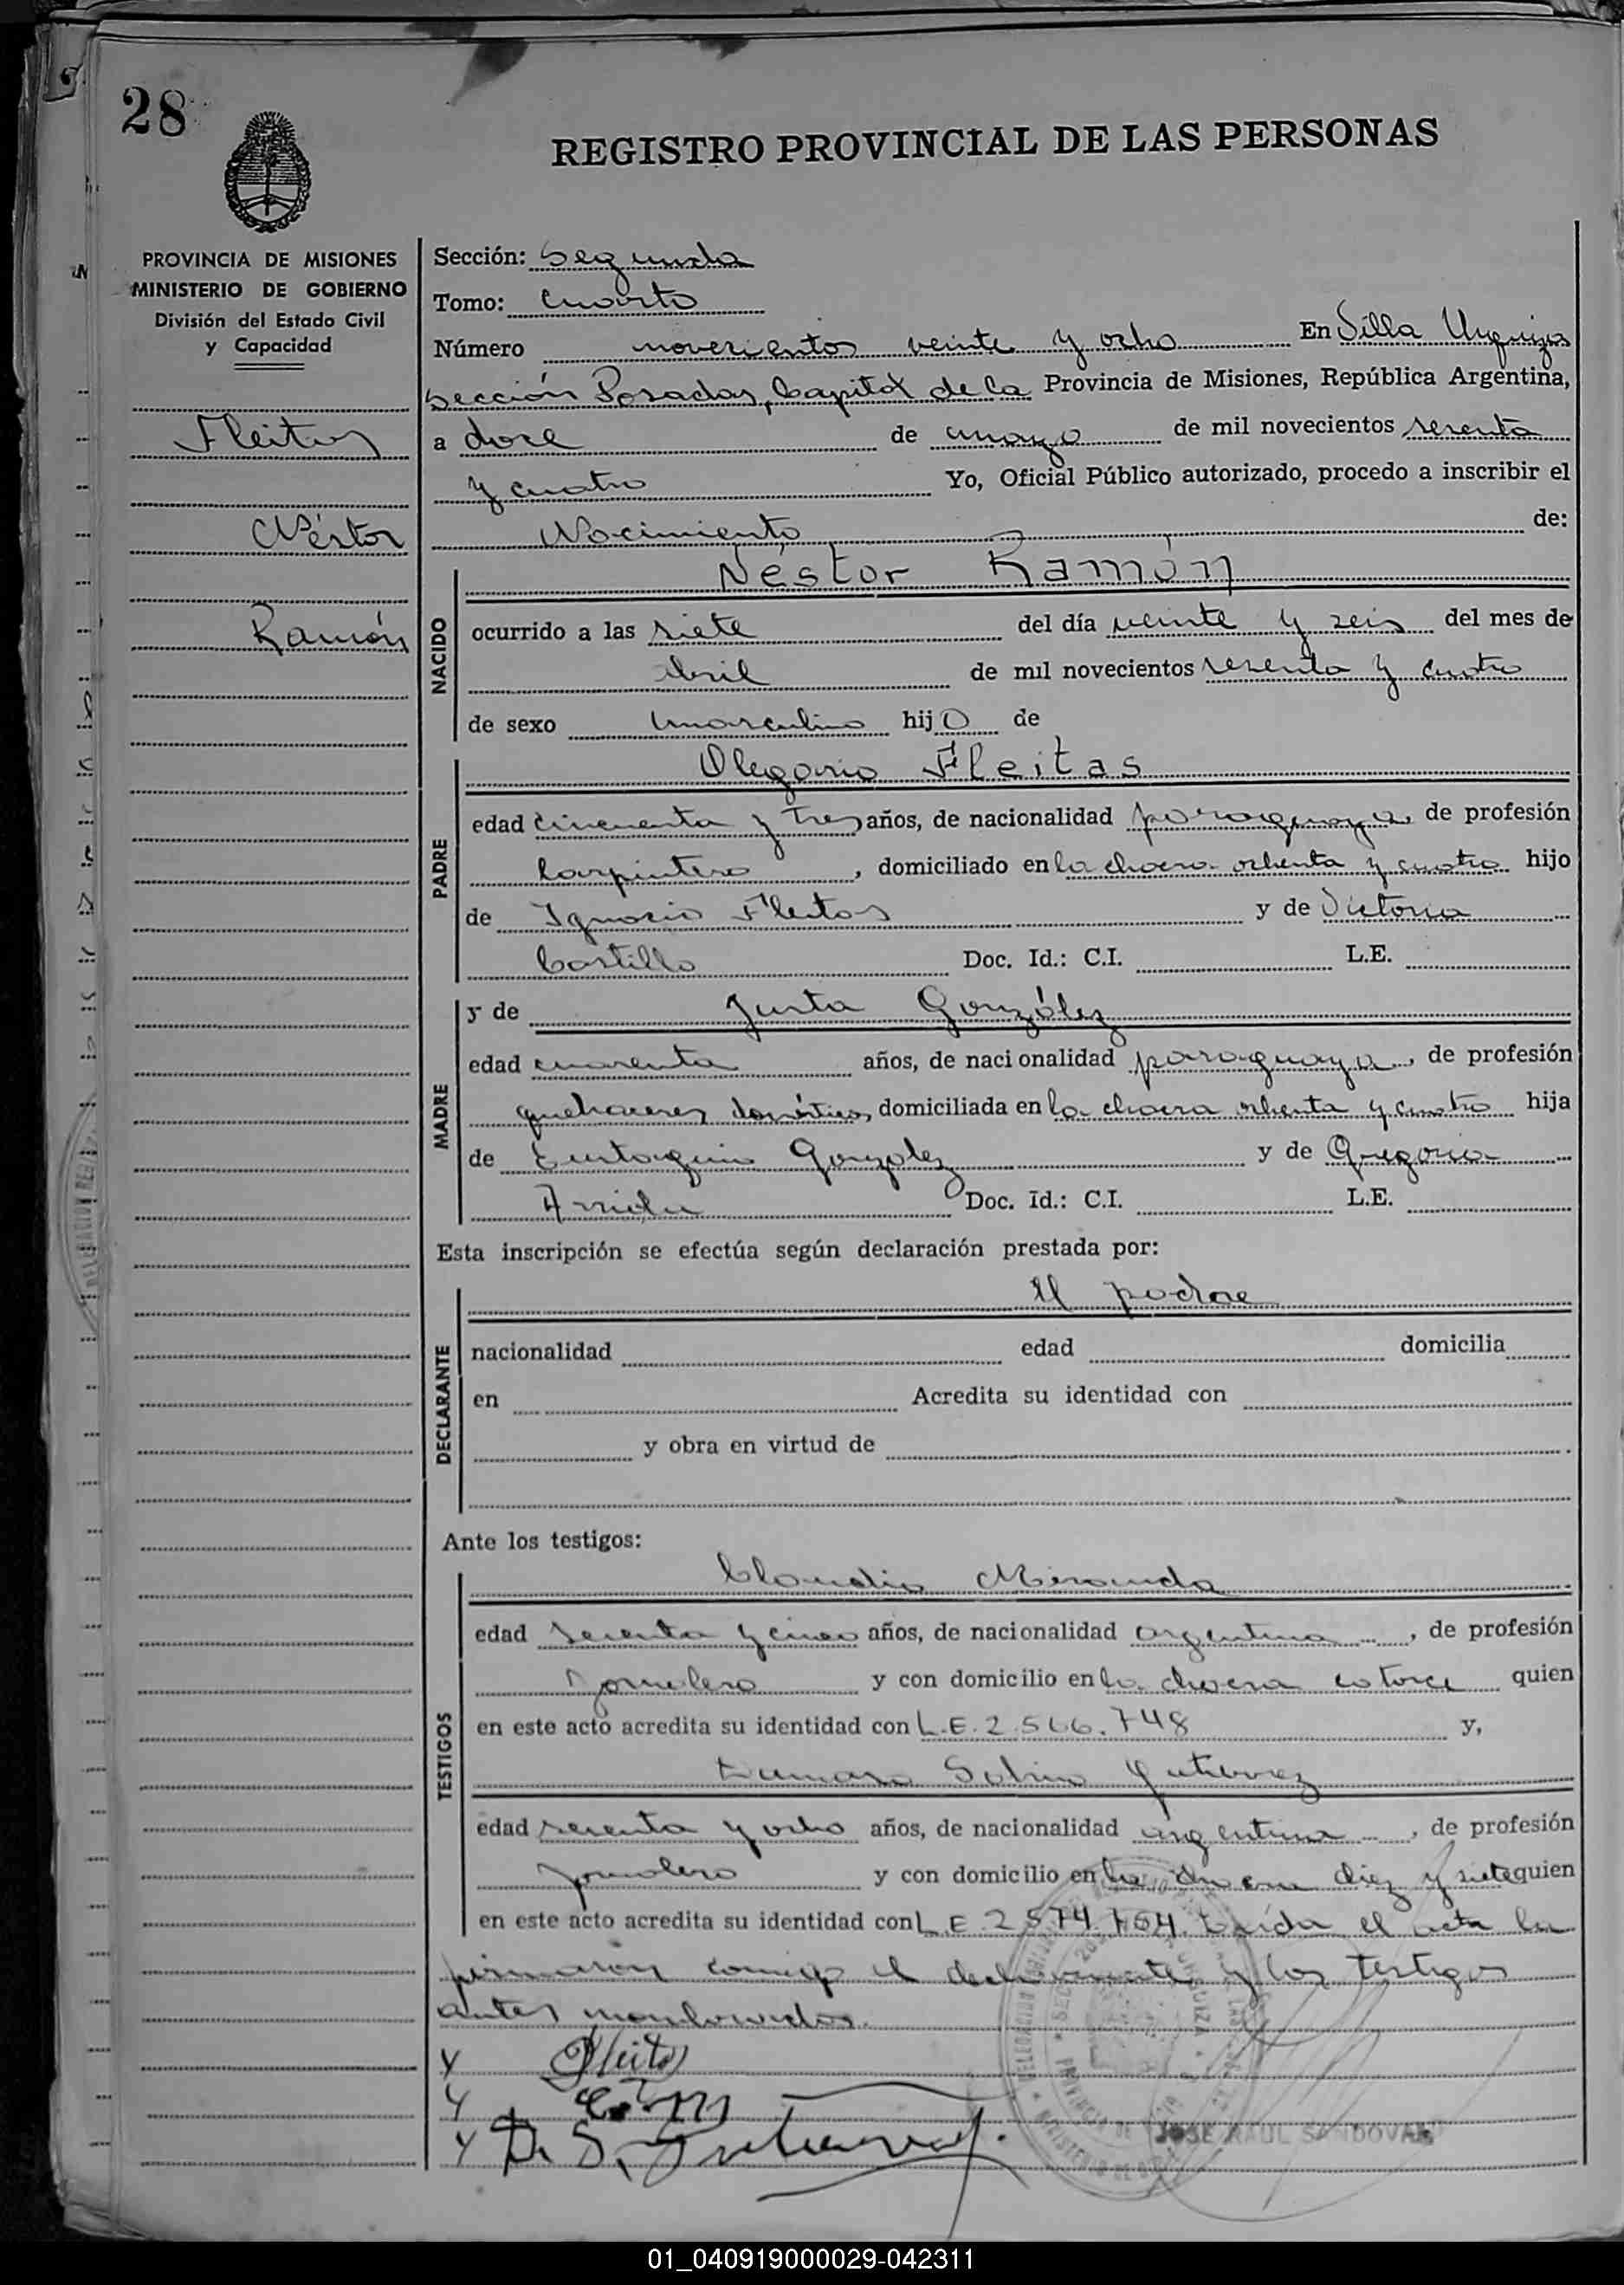 28
REGISTRO PROVINCIAL DE LAS PERSONAS
PROVINCIA DE MISIONES
MINISTERIO DE GOBIERNO
División del Estado Civil
y Capacidad
Fleitas
Néstor
Ramón
Sección: Segunda
Tomo: Cuarto
Número novecientos veinte y ocho En Villa Urquiza
Sección Posadas, Capital de la Provincia de Misiones, República Argentina,
a doce de mayo de mil novecientos sesenta
y cuatro Yo, Oficial Público autorizado, procedo a inscribir el
Nacimiento de:
NACIDO
Néstor Ramón
ocurrido a las siete del día veinte y seis del mes de
abril de mil novecientos sesenta y cuatro
de sexo masculino hijo de
PADRE
Olegario Fleitas
edad cincuenta y tres años, de nacionalidad paraguaya de profesión
Carpintero, domiciliado en la chacra ochenta y cuatro hijo
de Ignacio Fleitas y de Victoria
Castillo Doc. Id.: C.I. L.E.
MADRE
y de Justa González
edad cuarenta años, de nacionalidad paraguaya, de profesión
quehaceres domésticos, domiciliada en la chacra ochenta y cuatro hija
de Eustaquio González y de Gregoria
Doc. Id.: C.I. L.E.
Esta inscripción se efectúa según declaración prestada por:
DECLARANTE
El padre
nacionalidad edad domicilia
en Acredita su identidad con
y obra en virtud de
Ante los testigos:
TESTIGOS
Claudio Miranda
edad sesenta y cinco años, de nacionalidad argentina, de profesión
Jornalero y con domicilio en la chacra catorce quien
en este acto acredita su identidad con L.E. 2.566.748 y,
Damaso Sabino Gutierrez
edad sesenta y ocho años, de nacionalidad argentina, de profesión
jornalero y con domicilio en la chacra diez y siete quien
en este acto acredita su identidad con L.E. 2.574.764. Leída el acta la
firmaron conmigo el declarante y los testigos
antes nombrados.
Fleitas
D. S. Gutierrez
JOSE RAUL SANDOVAL
01_040919000029-042311